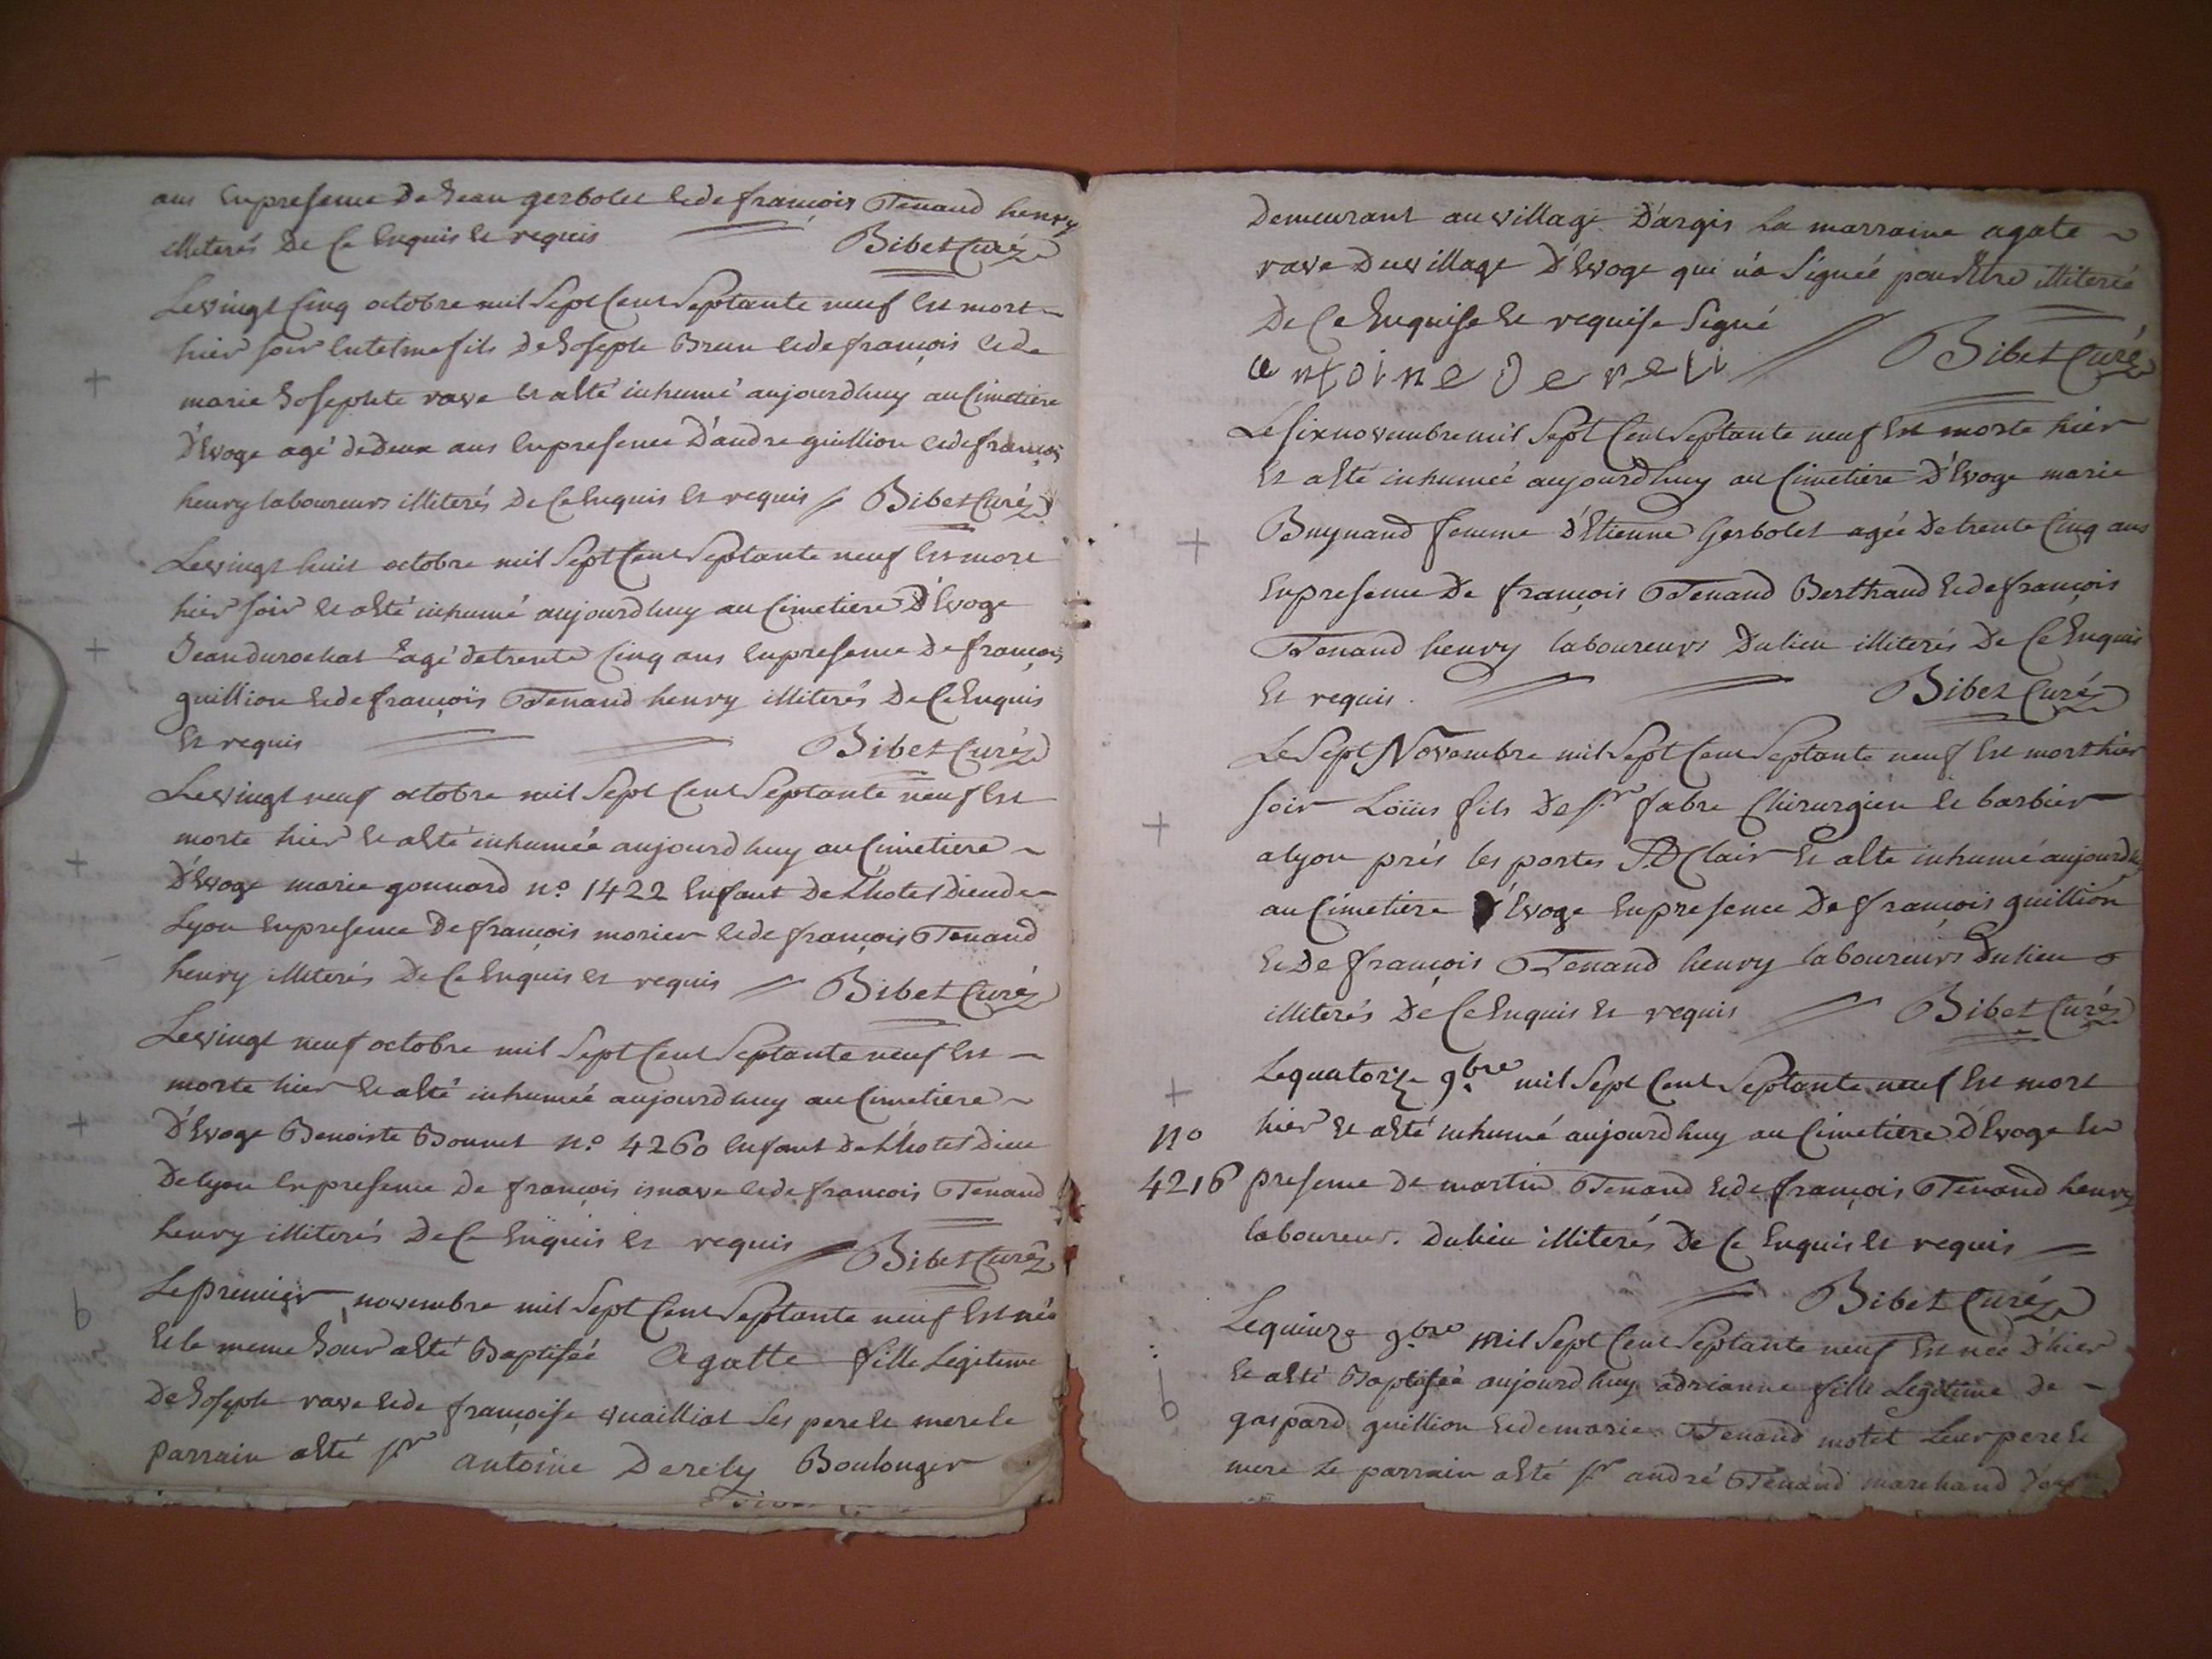 ans en presence de Jean gerbolet et de françois Tenand henry
illiterés de ce enquis et requis Bibet Curé
Le vingt cinq octobre mil sept cent septante neuf est mort
hier soir fils de Joseph Brun et de françois et de
marie Josephte rave et a été inhumé aujourdhuy au Cimetiere
d'Evoge agé de deux ans en presence d'andre guillion et de françois
henry laboureurs illiterés de ce enquis et requis Bibet Curé
Le vingt huit octobre mil sept cent septante neuf est mort
hier soir et a été inhumé aujourdhuy au Cimetiere d'Evoge
Jean durochat agé de trente cinq ans en presence de françois
guillion et de françois Tenand henry illiterés de ce enquis
et requis Bibet Curé
Le vingt neuf octobre mil sept cent septante neuf est
morte hier et a été inhumée aujourdhuy au Cimetiere
d'Evoge marie gonnard n° 1422 enfant de L'hotel dieu de
Lyon en presence de françois morier et de françois Tenand
henry illiterés de ce enquis et requis Bibet Curé
Le vingt neuf octobre mil sept cent septante neuf est
morte hier et a été inhumée aujourdhuy au Cimetiere
d'Evoge Benoiste Bonnet n° 4260 enfant de L'hotel dieu
de lyon en presence de françois et de francois Tenand
henry illiterés de ce enquis et requis Bibet Curé
b
Le premier novembre mil sept cent septante neuf est née
et le meme Jour a été Baptisée Agatte fille Legitime
de Joseph rave et de françoise vuailliat ses pere et mere le
parrain a été sr antoine Derely Boulonger
demeurant au village d'argis La marraine agate
rave du village d'Evoge qui n'a signée pour etre illiterée
de ce enquise et requise signé
antoine Dereli Bibet Curé
Le six novembre mil sept cent septante neuf est morte hier
et a été inhumée aujourdhuy au Cimetiere d'Evoge marie
Buynand femme d'Etienne Gerbolet agée de trente cinq ans
en presence de françois Tenand Berthand et de françois
Tenand henry laboureurs du lieu illiterés de ce enquis
et requis. Bibet Curé
Le sept Novembre mil sept cent septante neuf est mort hier
soir Loüis fils de sr fabre Chirurgien et barbier
a lyon prés les portes St Clair et a été inhumé aujourdhuy
au Cimetiere d'Evoge en presence de françois guillion
et de françois Tenand henry laboureurs du lieu
illiterés de ce enquis et requis Bibet Curé
Le quatorze 9bre mil sept cent septante neuf est mort
n° hier et a été inhumé aujourdhuy au Cimetiere d'Evoge en
4216 presence de martin Tenand et de françois Tenand henry
laboureurs. du lieu illiterés de ce enquis et requis
Bibet Curé
Le quinze 9bre mil sept cent septante neuf est née d'hier
b et a été Baptisée aujourdhuy adrianne fille Legitime de
gaspard guillion et de marie Tenand motet Leur pere et
mere Le parrain a été sr andré Tenand marchand